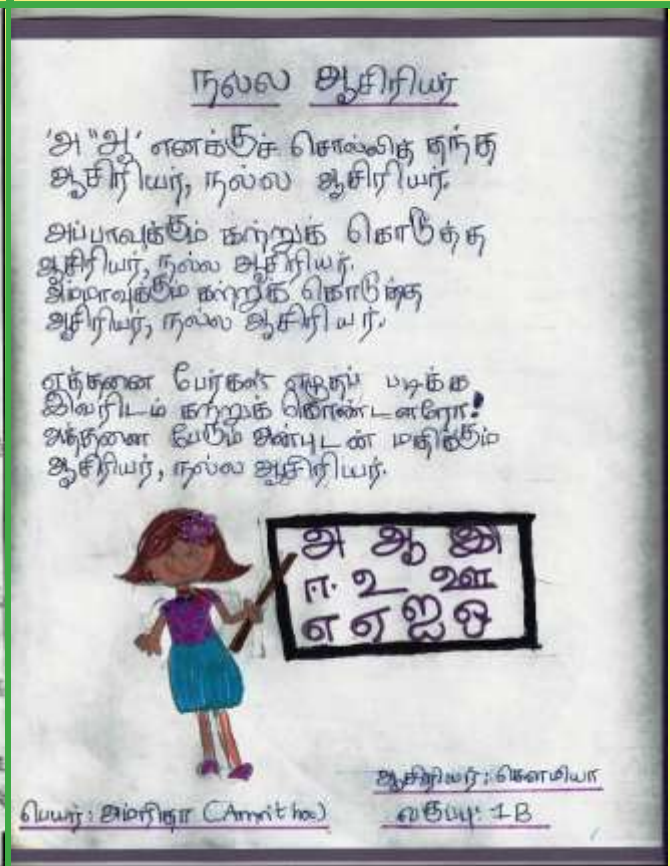 நல்ல ஆசிரியர்
'அ "ஆ' எனக்குச் சொல்லித் தந்த
ஆசிரியர், நல்ல ஆசிரியர்.
அப்பாவுக்கும் கற்றுக் கொடுத்த
ஆசிரியர், நல்ல ஆசிரியர்.
அம்மாவுக்கும் கற்றுக் கொடுத்த
ஆசிரியர், நல்ல ஆசிரியர்.
எத்தனை பேர்கள் எழுதப் படிக்க
இவரிடம் கற்றுக் கொண்டனரோ!
அத்தனை பேரும் அன்புடன் மதிக்கும்
ஆசிரியர், நல்ல ஆசிரியர்.
அ ஆ இ
ஈ. உ ஊ
எ ஏ ஐ ஒ
ஆசிரியர்: சௌமியா
பெயர்: அமரிதா (Amritha)
வகுப்பு: 1B